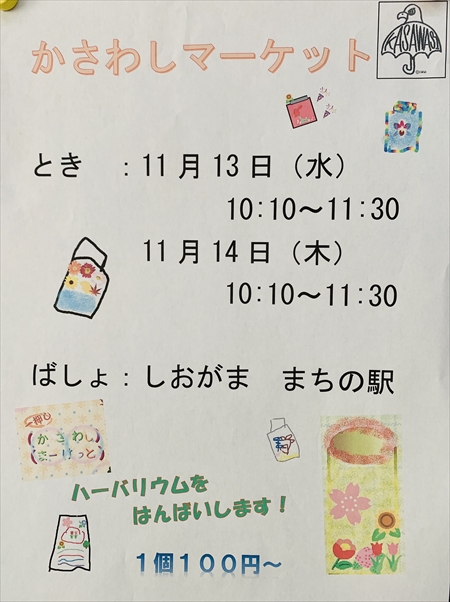 かさわしマーケット
KASAWASI
とき ：11月13日（水）
10:10～11:30
11月14日（木）
10:10～11:30
ばしょ：しおがま まちの駅
一押し
かさわし
まーけっと
ハーバリウムを
はんばいします！
1個100円～